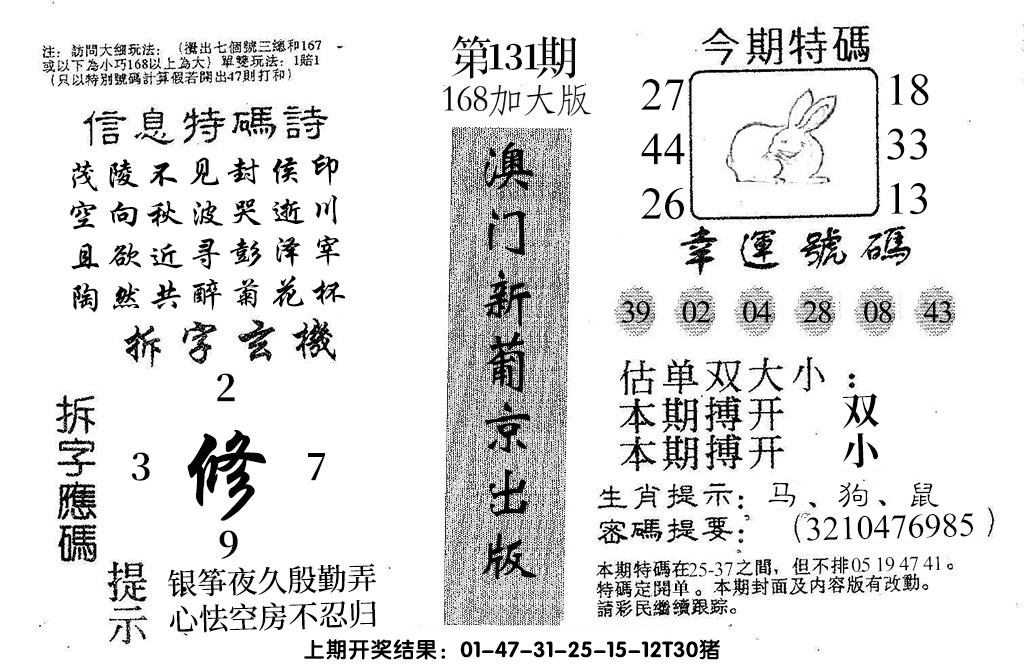 注：訪問大细玩法：（攪出七個號三總和167
或以下為小巧168以上為大）單雙玩法：1賠1
（只以特別號碼計算假若開出47則打和）
信息特碼詩
茂陵不见封侯印
空向秋波哭逝川
且欲近寻彭泽宰
陶然共醉菊花杯
拆字玄機
2
3 修 7
9
拆字應碼
提示
银筝夜久殷勤弄
心怯空房不忍归
第131期
168加大版
澳门新葡京出版
今期特碼
27 18
44 33
26 13
幸運號碼
39 02 04 28 08 43
估单双大小：
本期搏开 双
本期搏开 小
生肖提示：马、狗、鼠
密碼提要：（3210476985）
本期特碼在25-37之間，但不排05 19 47 41。
特碼定開单。本期封面及内容版有改動。
請彩民繼續跟踪。
上期开奖结果：01-47-31-25-15-12T30猪